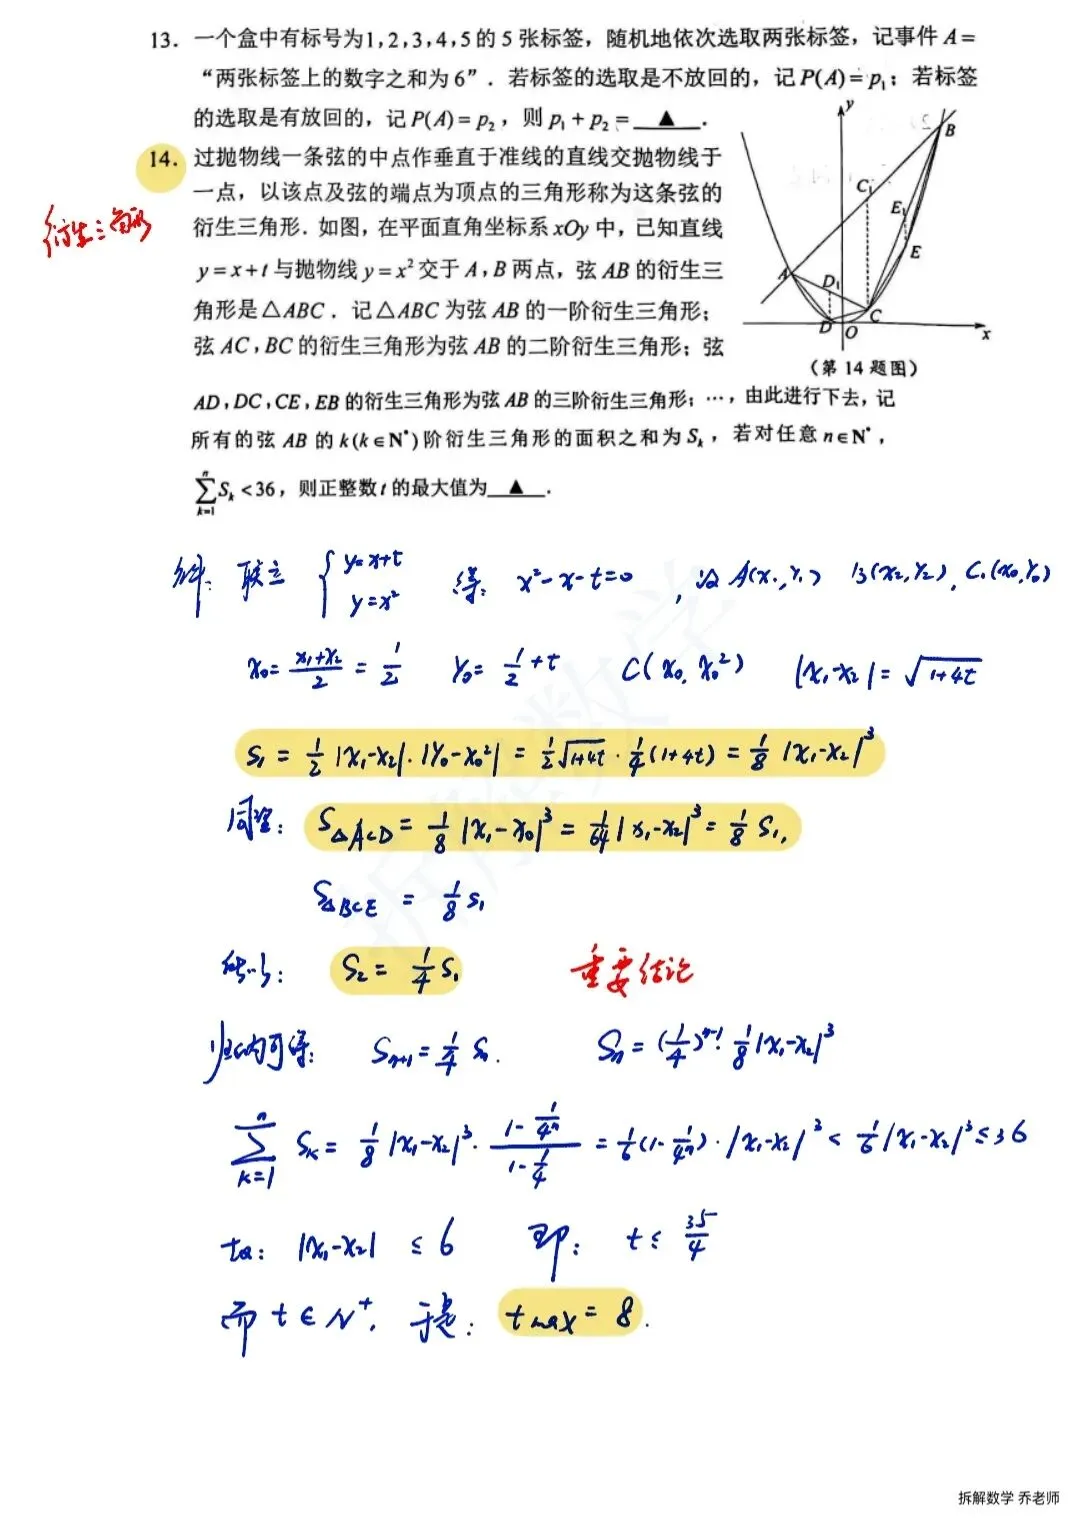 13. 一个盒中有标号为1,2,3,4,5的5张标签，随机地依次选取两张标签，记事件A=
“两张标签上的数字之和为6”．若标签的选取是不放回的，记P(A)=p₁；若标签
的选取是有放回的，记P(A)=p₂，则p₁+p₂=▲．
14. 过抛物线一条弦的中点作垂直于准线的直线交抛物线于
一点，以该点及弦的端点为顶点的三角形称为这条弦的
衍生三角形
衍生三角形．如图，在平面直角坐标系xOy中，已知直线
y=x+t与抛物线y=x²交于A,B两点，弦AB的衍生三
角形是△ABC．记△ABC为弦AB的一阶衍生三角形；
弦AC,BC的衍生三角形为弦AB的二阶衍生三角形；弦
y B C₁ E₁ E A D₁ D O C x
(第14题图)
AD,DC,CE,EB的衍生三角形为弦AB的三阶衍生三角形；…，由此进行下去，记
所有的弦AB的k(k∈N*)阶衍生三角形的面积之和为Sₖ，若对任意n∈N*，
∑ₖ₌₁ⁿ Sₖ<36，则正整数t的最大值为▲．
解: 联立 { y=x+t y=x² 得: x²-x-t=0, 设A(x₁,y₁) B(x₂,y₂), C₁(x₀,y₀)
x₀=(x₁+x₂)/2=1/2 y₀=1/2+t C(x₀,x₀²) |x₁-x₂|=√(1+4t)
S₁=1/2|x₁-x₂|·|y₀-x₀²|=1/2√(1+4t)·1/4(1+4t)=1/8|x₁-x₂|³
同理: S△ACD=1/8|x₁-x₀|³=1/64|x₁-x₂|³=1/8S₁,
S△BCE=1/8S₁
所以: S₂=1/4S₁ 重要结论
归纳可得: Sₙ₊₁=1/4Sₙ. Sₙ=(1/4)ⁿ⁻¹·1/8|x₁-x₂|³
∑ₖ₌₁ⁿ Sₖ=1/8|x₁-x₂|³·(1-1/4ⁿ)/(1-1/4)=1/6(1-1/4ⁿ)·|x₁-x₂|³<1/6|x₁-x₂|³≤36
故: |x₁-x₂|≤6 即: t≤35/4
而t∈N⁺, 于是: tmax=8.
拆解数学
拆解数学 乔老师